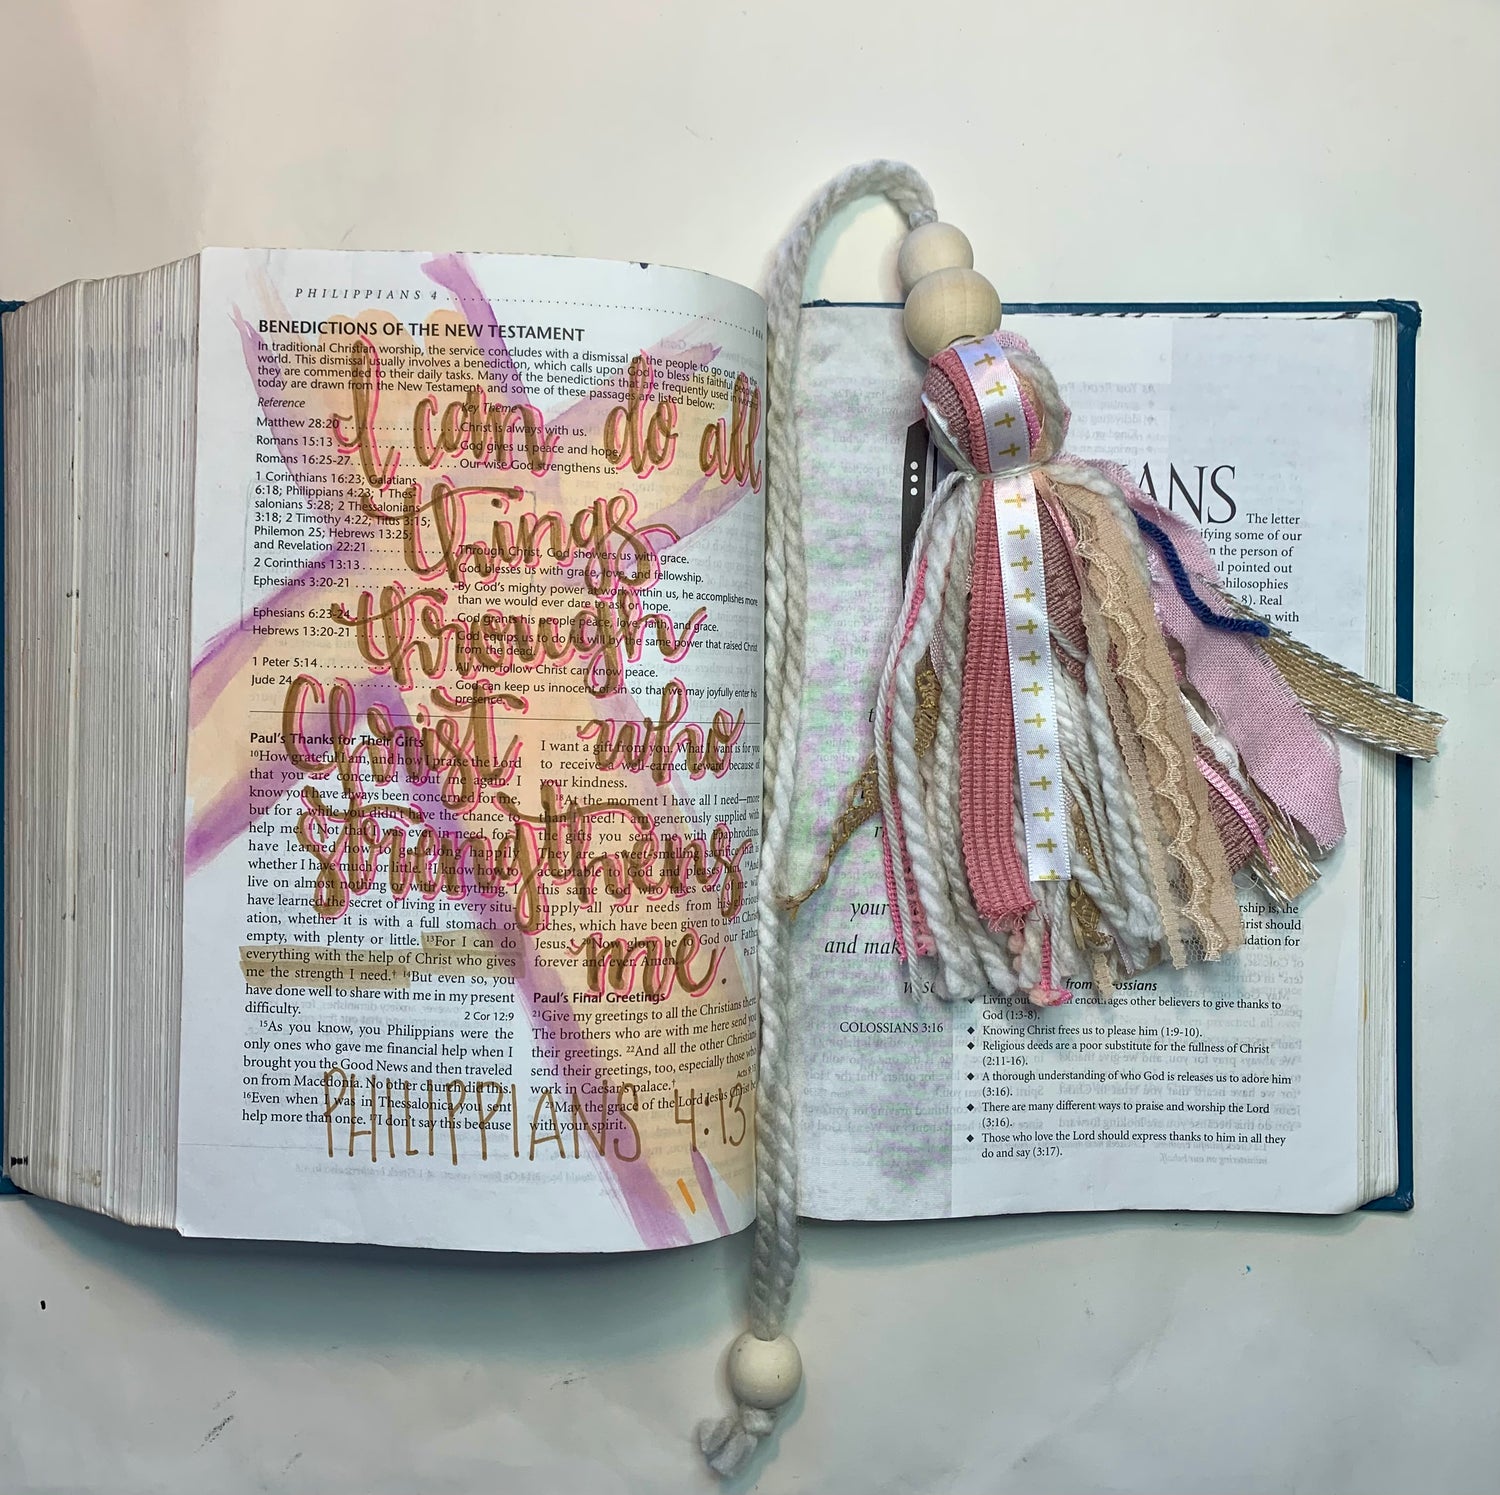 PHILIPPIANS 4
BENEDICTIONS OF THE NEW TESTAMENT
In traditional Christian worship, the service concludes with a dismissal of the people to go out into the
world. This dismissal usually involves a benediction, which calls upon God to bless his faithful people as
they are commended to their daily tasks. Many of the benedictions that are frequently used in worship
today are drawn from the New Testament, and some of these passages are listed below:
Reference Key Theme
Matthew 28:20 Christ is always with us.
Romans 15:13 God gives us peace and hope.
Romans 16:25-27 Our wise God strengthens us.
1 Corinthians 16:23; Galatians
6:18; Philippians 4:23; 1 Thes-
salonians 5:28; 2 Thessalonians
3:18; 2 Timothy 4:22; Titus 3:15;
Philemon 25; Hebrews 13:25;
and Revelation 22:21 Through Christ, God showers us with grace.
2 Corinthians 13:13 God blesses us with grace, love, and fellowship.
Ephesians 3:20-21 By God's mighty power at work within us, he accomplishes more
than we would ever dare to ask or hope.
Ephesians 6:23-24 God grants his people peace, love, faith, and grace.
Hebrews 13:20-21 God equips us to do his will by the same power that raised Christ
from the dead.
1 Peter 5:14 All who follow Christ can know peace.
Jude 24 God can keep us innocent of sin so that we may joyfully enter his
presence.
I can do all
things
through
Christ who
strengthens
me.
PHILIPPIANS 4:13
Paul's Thanks for Their Gifts
10How grateful I am, and how I praise the Lord
that you are concerned about me again. I
know you have always been concerned for me,
but for a while you didn't have the chance to
help me. 11Not that I was ever in need, for I
have learned how to get along happily
whether I have much or little. 12I know how to
live on almost nothing or with everything. I
have learned the secret of living in every situ-
ation, whether it is with a full stomach or
empty, with plenty or little. 13For I can do
everything with the help of Christ who gives
me the strength I need.† 14But even so, you
have done well to share with me in my present
difficulty.
2 Cor 12:9
15As you know, you Philippians were the
only ones who gave me financial help when I
brought you the Good News and then traveled
on from Macedonia. No other church did this.
16Even when I was in Thessalonica you sent
help more than once. 17I don't say this because
I want a gift from you. What I want is for you
to receive a well-earned reward because of
your kindness.
18At the moment I have all I need—more
than I need! I am generously supplied with
the gifts you sent me with Epaphroditus.
They are a sweet-smelling sacrifice that is
acceptable to God and pleases him. 19And
this same God who takes care of me will
supply all your needs from his glorious
riches, which have been given to us in Christ
Jesus. 20Now glory to God our Father
forever and ever. Amen.
Ps 23
Paul's Final Greetings
21Give my greetings to all the Christians there.
The brothers who are with me here send you
their greetings. 22And all the other Christians
send their greetings, too, especially those who
work in Caesar's palace.†
23May the grace of the Lord Jesus Christ be
with your spirit.
IANS
The letter
ifying some of our
n the person of
ul pointed out
philosophies
8). Real
with
your
and mak
COLOSSIANS 3:16
rship is, the
hrist should
dation for
from
Living out encourages other believers to give thanks to
God (1:3-8).
◆ Knowing Christ frees us to please him (1:9-10).
◆ Religious deeds are a poor substitute for the fullness of Christ
(2:11-16).
◆ A thorough understanding of who God is releases us to adore him
(3:16).
◆ There are many different ways to praise and worship the Lord
(3:16).
◆ Those who love the Lord should express thanks to him in all they
do and say (3:17).